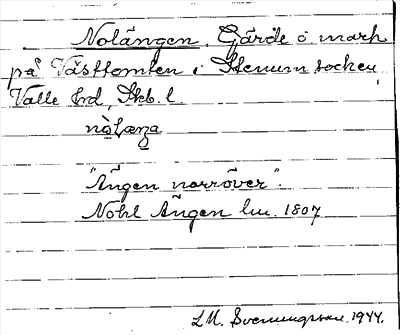 Nolängen. Gärde o mark
på Västtomten i Stenum socken,
Valle hrd, Skb. l.
nòlæŋa
"Ängen norröver".
Nohl Ängen lm. 1807
L.M. Svenungsson. 1944.